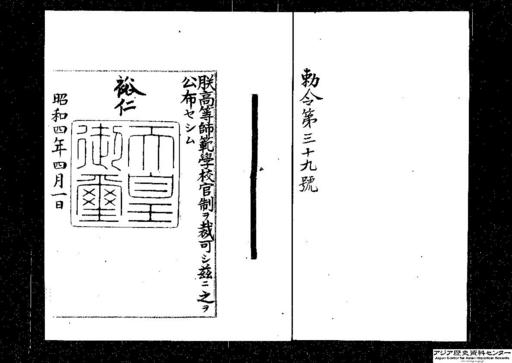 勅令第三十九號
朕高等師範學校官制ヲ裁可シ茲ニ之ヲ
公布セシム
裕仁
天皇
御璽
昭和四年四月一日
アジア歴史資料センター
Japan Center for Asian Historical Records